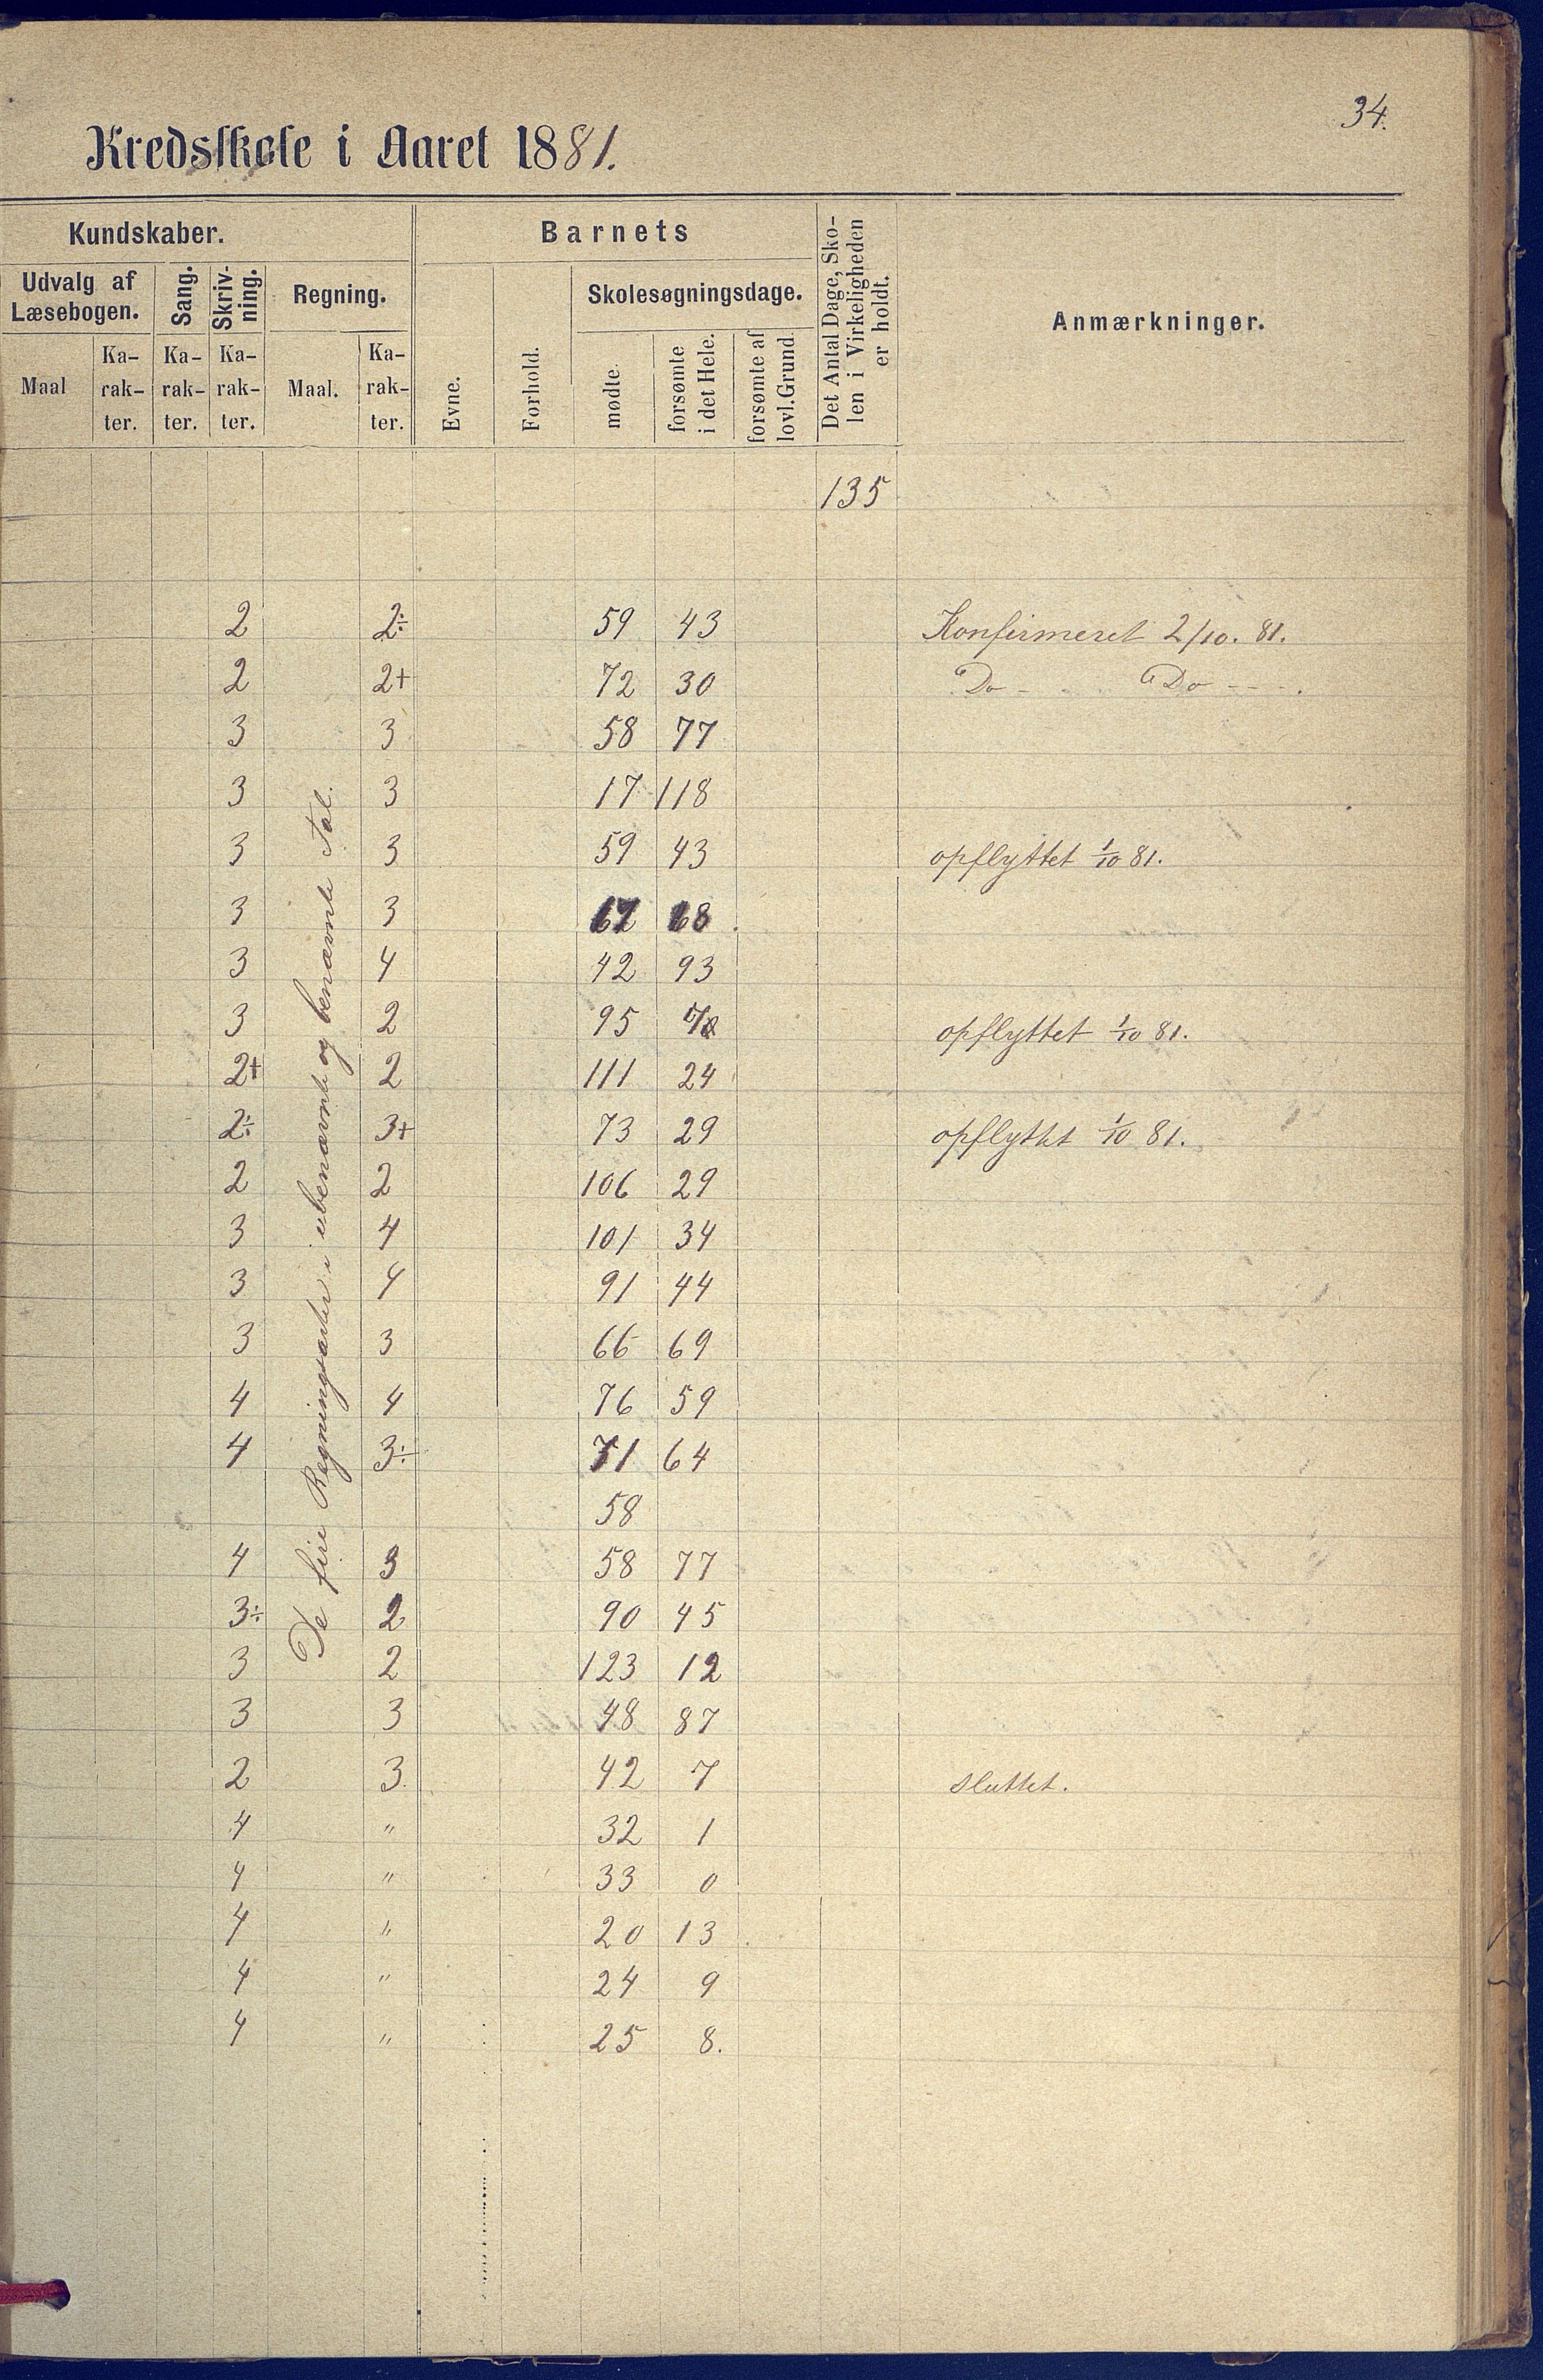 34.
Kredsskole i Aaret 1881.
Kundskaber. Barnets Det Antal Dage, Sko-
len i Virkeligheden
er holdt. Anmærkninger.
Udvalg af
Læsebogen. Sang. Skriv-
ning. Regning. Evne. Forhold. Skolesøgningsdage.
Maal Ka-
rak-
ter. Ka-
rak-
ter. Ka-
rak-
ter. Maal. Ka-
rak-
ter. mødte. forsømte
i det Hele. forsømte af
lovl. Grund.
135
De fire Regningsarter i ubenævnte og benævnte Tal.
2 2÷ 59 43 Konfirmeret 2/10. 81.
2 2+ 72 30 Do - Do ---.
3 3 58 77
3 3 17 118
3 3 59 43 opflyttet 1/10 81.
3 3 68
3 4 42 93
3 2 95 opflyttet 1/10 81.
2+ 2 111 24
2÷ 3+ 73 29 opflyttet 1/10 81.
2 2 106 29
3 4 101 34
3 4 91 44
3 3 66 69
4 4 76 59
4 3÷ 71 64
58
4 3 58 77
3÷ 2 90 45
3 2 123 12
3 3 48 87
2 3 42 7 sluttet.
4 " 32 1
4 " 33 0
4 " 20 13
4 " 24 9
4 " 25 8.